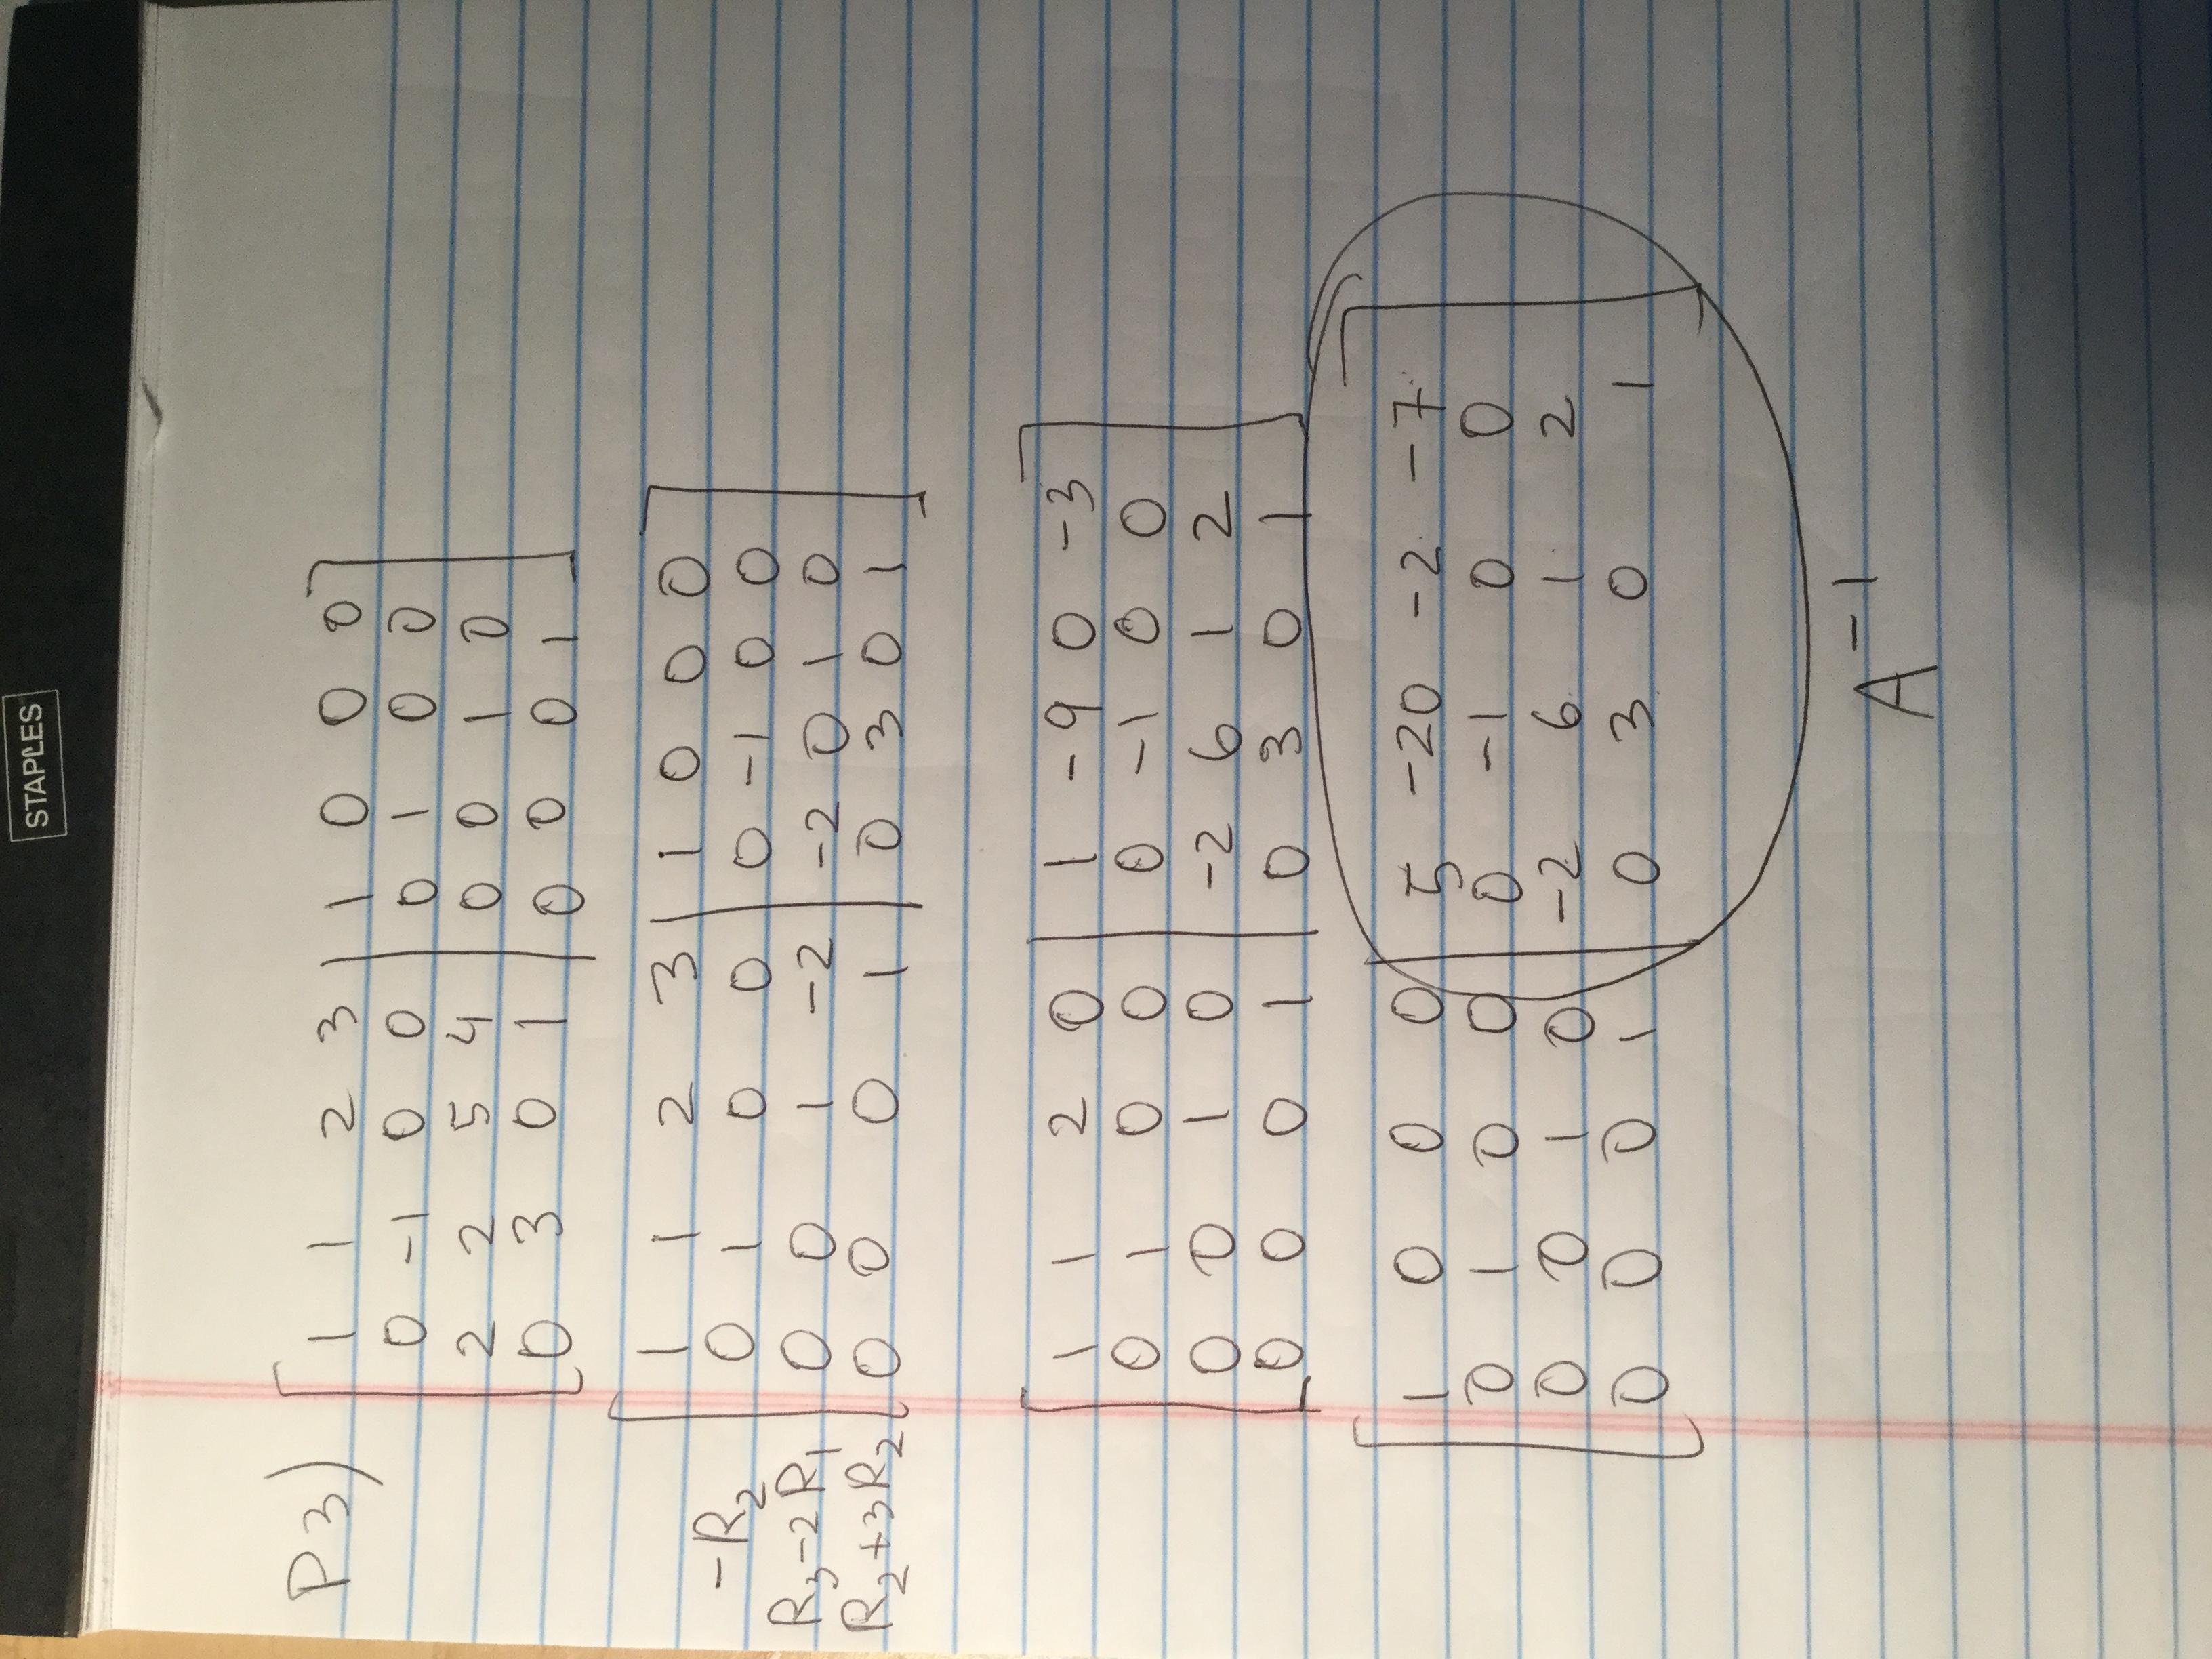 STAPLES
P3)
[ 1 1 2 3 | 1 0 0 0 ]
0 -1 0 0 | 0 1 0 0
2 2 5 4 | 0 0 1 0
0 3 0 1 | 0 0 0 1
[ 1 1 2 3 | 1 0 0 0 ]
-R2 0 1 0 0 | 0 -1 0 0
R3-2R1 0 0 1 -2 | -2 0 1 0
R2+3R2 0 0 0 1 | 0 3 0 1
[ 1 1 2 0 | 1 -9 0 -3 ]
0 1 0 0 | 0 -1 0 0
0 0 1 0 | -2 6 1 2
0 0 0 1 | 0 3 0 1
[ 1 0 0 0 | 5 -20 -2 -7 ]
0 1 0 0 | 0 -1 0 0
0 0 1 0 | -2 6 1 2
0 0 0 1 | 0 3 0 1
A-1